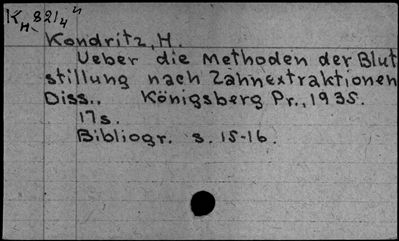 Kн 821/4 21
Kondritz, H.
Ueber die Methoden der Blut
stillung nach Zahnextraktionen
Diss.. Königsberg Pr., 1935.
17s.
Bibliogr. s. 15-16.